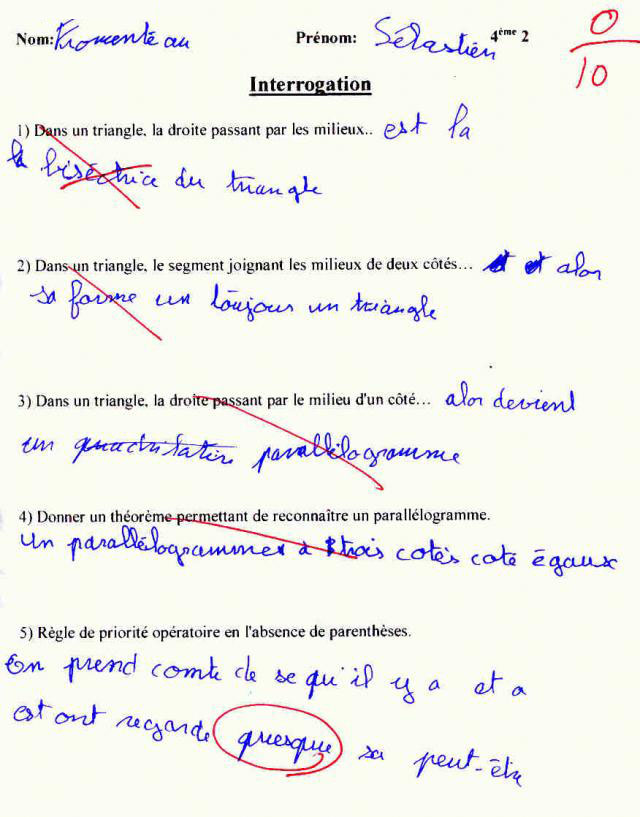 Nom: Fromenteau Prénom: Sébastien 4ème 2 0/10
Interrogation
1) Dans un triangle, la droite passant par les milieux.. est la
la biséctrice du triangle
2) Dans un triangle, le segment joignant les milieux de deux côtés... et alor
sa forme un toujous un triangle
3) Dans un triangle, la droite passant par le milieu d'un côté... alor devient
un parallélogramme
4) Donner un théorème permettant de reconnaître un parallélogramme.
Un parallélogramme à trois cotés coté égaux
5) Règle de priorité opératoire en l'absence de parenthèses.
On prend comte de se qu'il y a et a
est ont regarde quesque sa peut-être